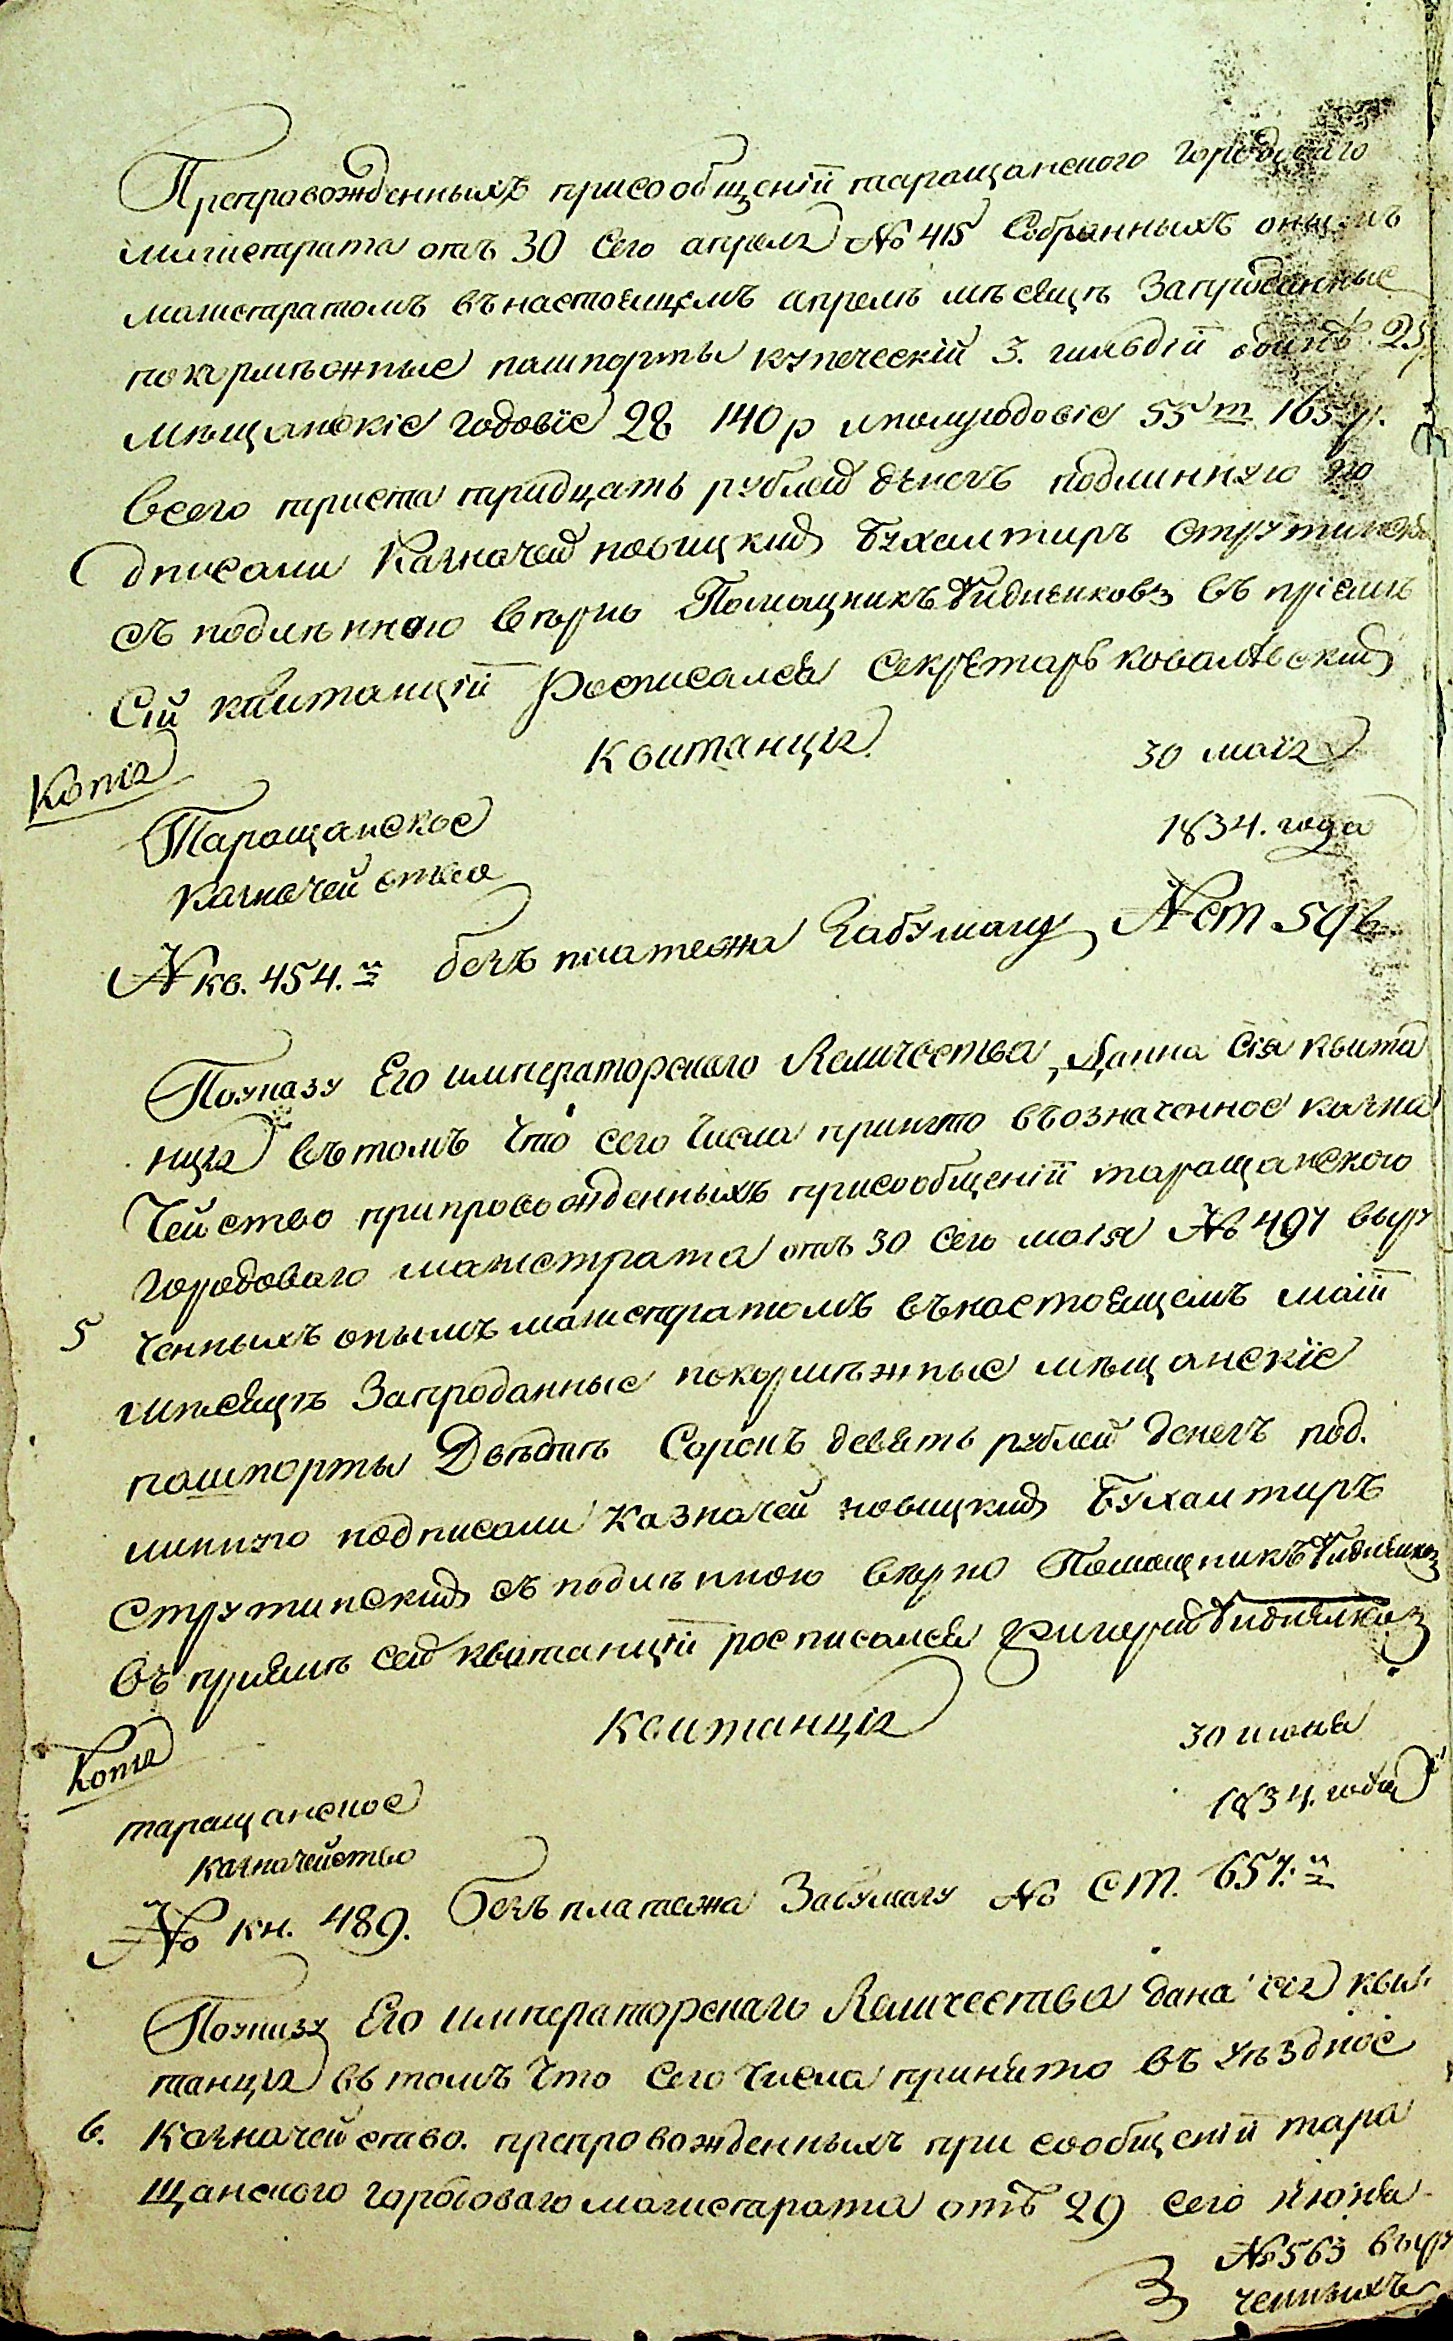 Препровожденныхъ присообщеніи таращанского городового
магистрата отъ 30 сего апреля № 415 собранныхъ онымъ
магистратомъ въ настоящемъ апреле месяце запроданные
покормежные пашпорты купеческій 3. гильдіи одинъ 25
мещанскіе годовіе 28 140 р иполугодовіе 55 m 165 р.
всего триста тридцать рублей денегъ подлинную по
дписали казначей новицкий бухалтиръ струтинский
съ подленною верно Помощникъ въ пріеме
Сій квитанціи росписался секретарь ковальский
Квитанція 30 маія
Копія
Таращанское 1834. года
казначейство
№ кв. 454.й безъ платежа забумагу № ст 596
Поуказу Его императорскаго величества Данна сія квита
нція въ томъ что сего числа принято въозначенное казна
чейство припровожденныхъ присообщеніи таращанского
городоваго магистрата отъ 30 сего маія № 497 выру
5 ченныхъ онымъ магистратомъ въ настоящемъ маіи
месяце запроданные покормежные мещанскіе
пашпорты Двести Сорокъ девять рублей денегъ под.
линную подписали казначей новицкий бухалтиръ
струтинский съ подленною верно Помощникъ
въ приеме сей квитанціи росписался Григорий
Квитанція 30 июня
Копія
таращанское 1834. года
казначейство
№ кн. 489. безъ платежа забумагу № ст. 657.й
Поуказу Его императорскаго величества дана сія кви.
танція въ томъ что сего числа принято въ уездное
6. казначейство. препровожденныхъ при сообщеніи тара
щанского городоваго магистрата отъ 29 сего июня
№ 563 выру
ченныхъ